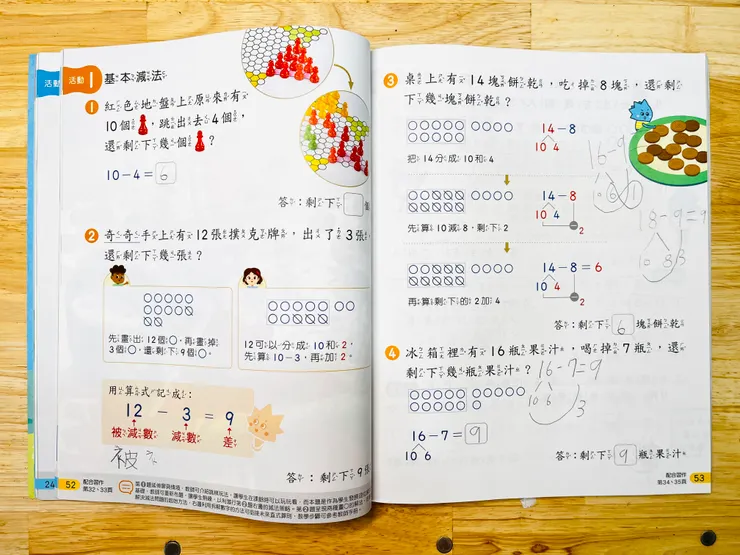 活動 1 基本減法
1 紅色地盤上原來有
10個 ,跳出去4個,
還剩下幾個 ?
10-4= 6
答:剩下 個
2 奇奇手上有12張撲克牌,出了3張,
還剩下幾張?
先畫出12個○,再畫掉
3個○,還剩下9個○。
12可以分成10和2,
先算10-3,再加2。
用算式記成:
12 - 3 = 9
被減數 減數 差
被
答:剩下9張
24 52
配合習作
第32、33頁
3 桌上有14塊餅乾,吃掉8塊,還剩
下幾塊餅乾?
14-8
10 4
把14分成10和4
14-8
10 4
2
先算10減8,剩下2
14-8=6
10 4
2
再算剩下的2加4
答:剩下 6 塊餅乾
16-9
18-9=9
10 8
4 冰箱裡有16瓶果汁,喝掉7瓶,還
剩下幾瓶果汁?
16-7=9
10 6
3
16-7= 9
10 6
答:剩下 9 瓶果汁
配合習作
第34、35頁
53